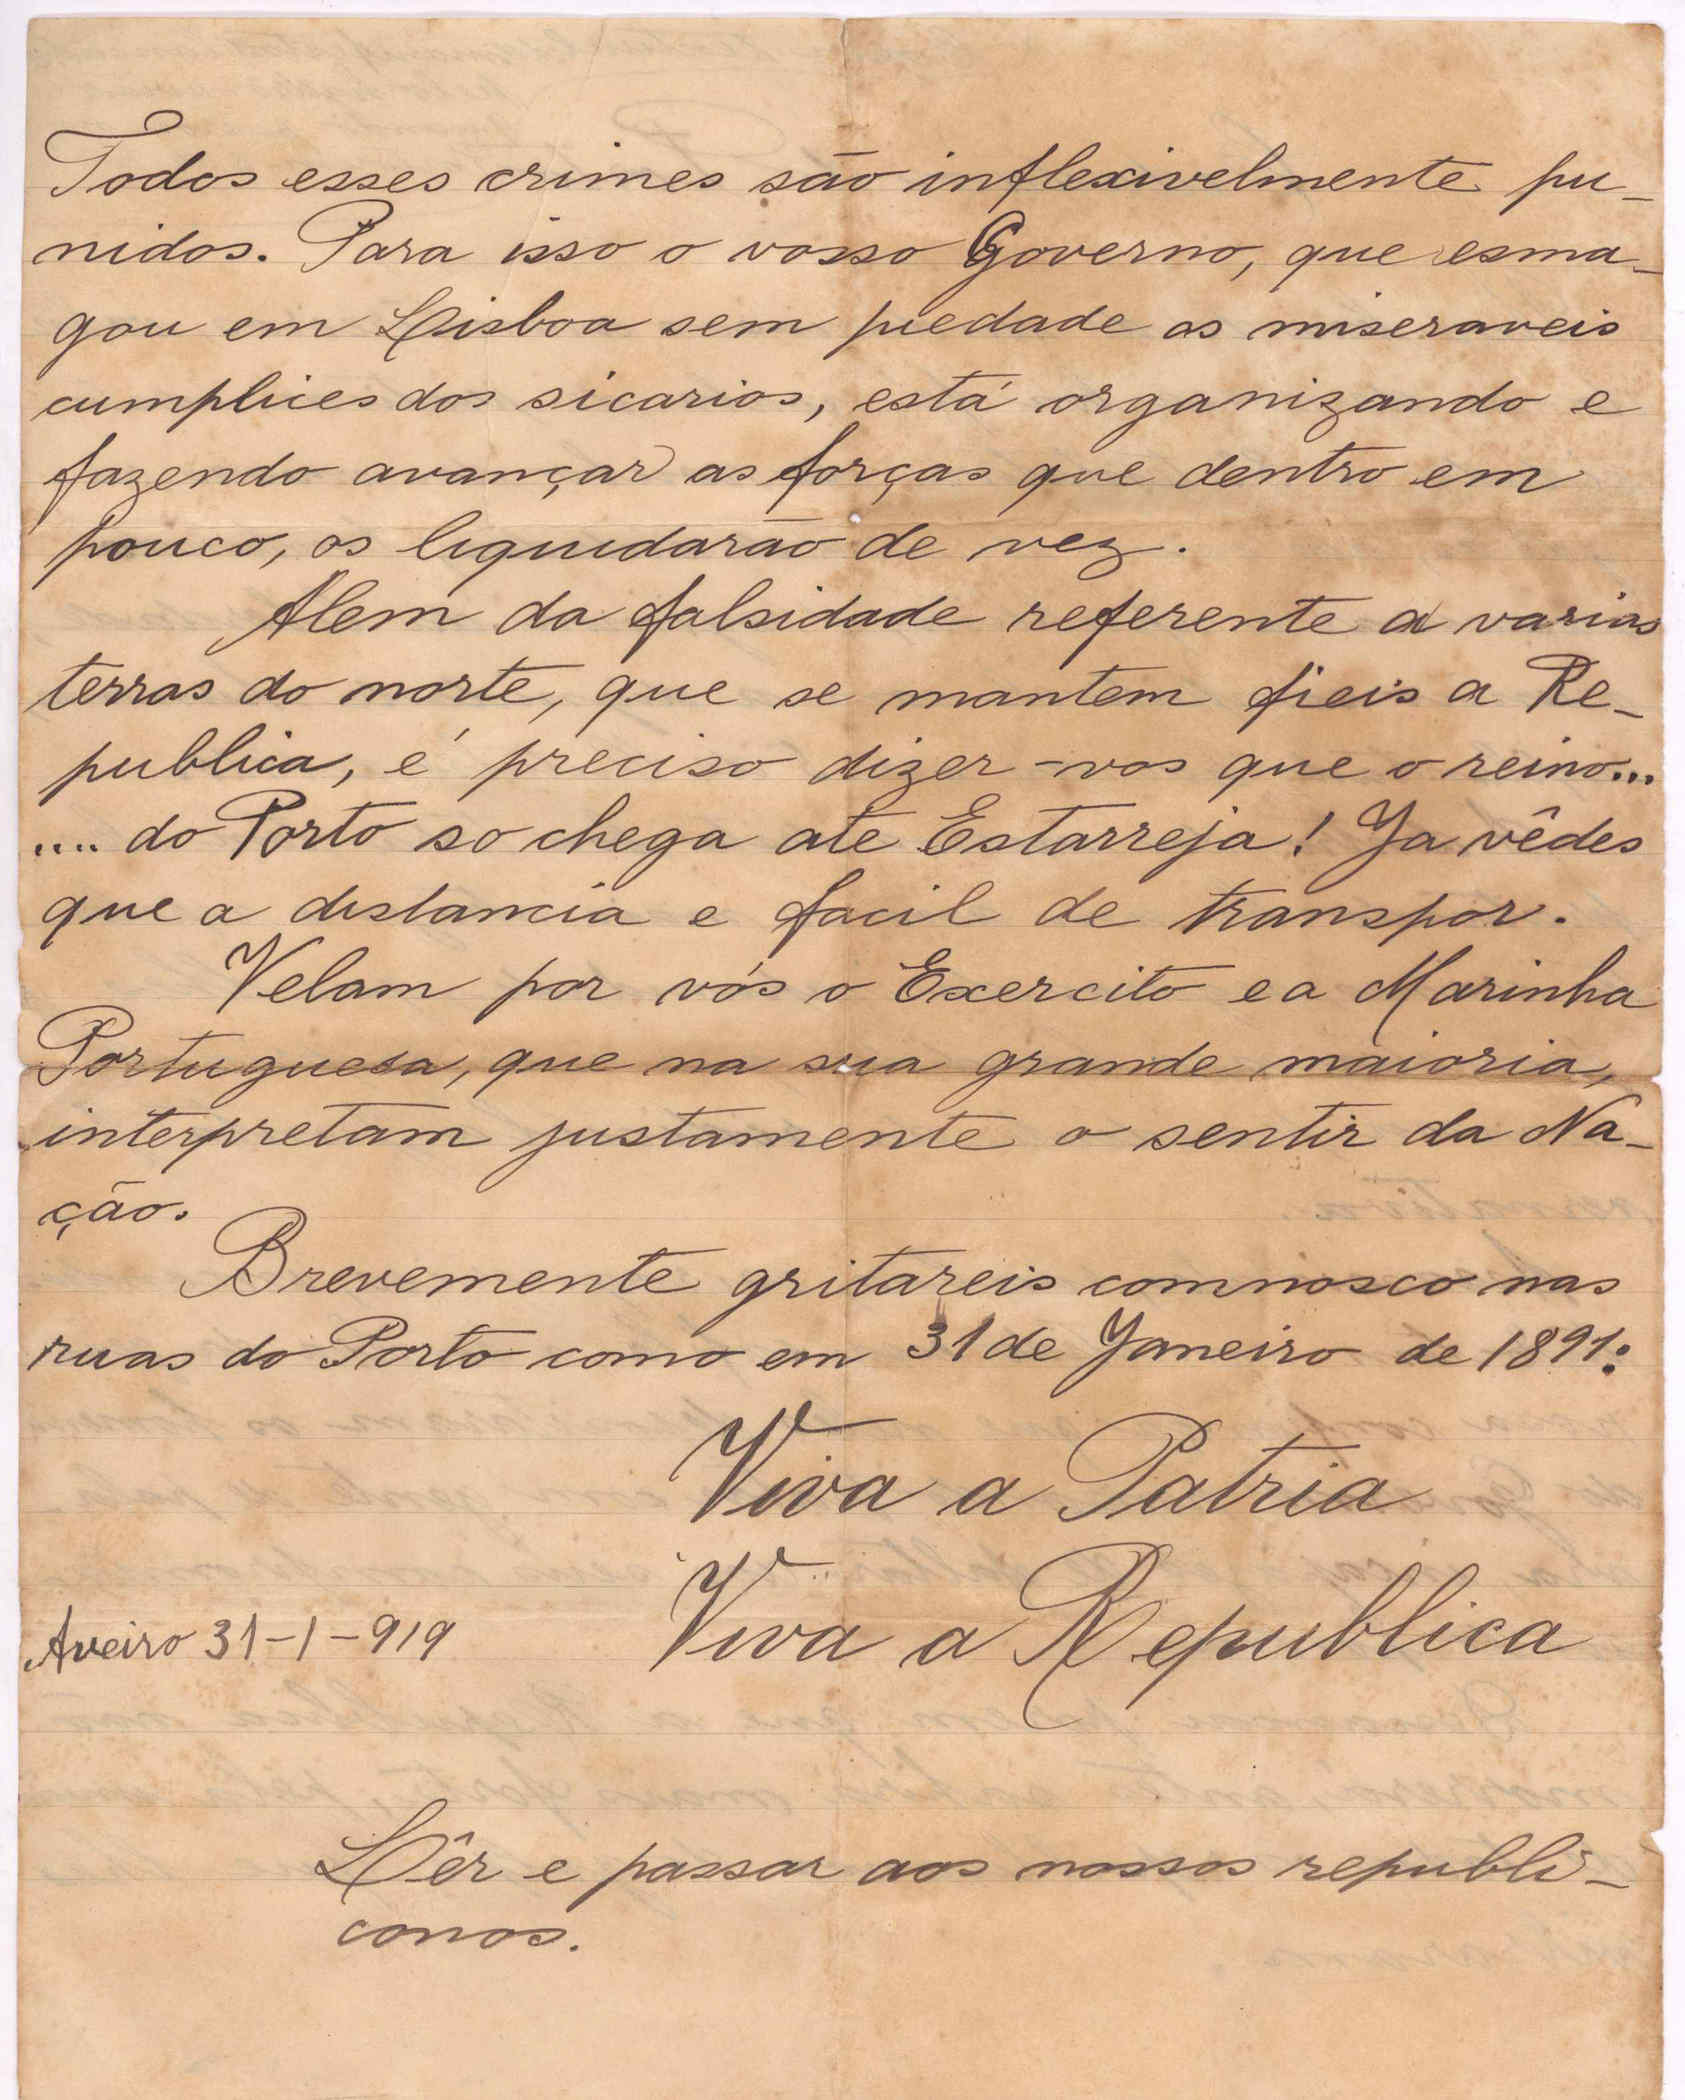 Todos esses crimes são inflexivelmente pu-
nidos. Para isso o vosso Governo, que esma-
gou em Lisboa sem piedade os miseraveis
cumplices dos sicarios, está organizando e
fazendo avançar as forças que dentro em
pouco, os liquidarão de vez.
Alem da falsidade referente a varias
terras do norte, que se mantem fieis a Re-
publica, é preciso dizer-vos que o reino...
.... do Porto so chega ate Estarreja! Ja vêdes
que a distancia e facil de transpor.
Velam por vós o Exercito e a Marinha
Portuguesa, que na sua grande maioria,
interpretam justamente o sentir da Na-
ção.
Brevemente gritareis comnosco nas
ruas do Porto como em 31 de Janeiro de 1891:
Viva a Patria
Viva a Republica
Aveiro 31-1-919
Lêr e passar aos nossos republi-
canos.